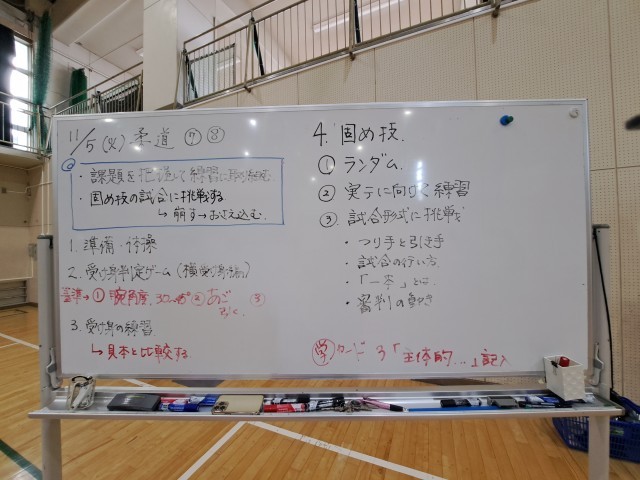 11/5(火) 柔道 ⑦⑧
・課題を把握して練習に取り組む。
・固め技の試合に挑戦する
↳ 崩す→おさえ込む。
1. 準備・体操
2. 受け身判定ゲーム(横受け身編)
基準→① 腕角度、30〜45° ② あご ③
ひく。
3. 受け身の練習
↳ 見本と比較する
4. 固め技
① ランダム
② 実テに向けて練習
③ 試合形式に挑戦
・つり手と引き手
・試合の行い方
・「一本」とは
・審判の動き
学カード 3「主体的…」記入